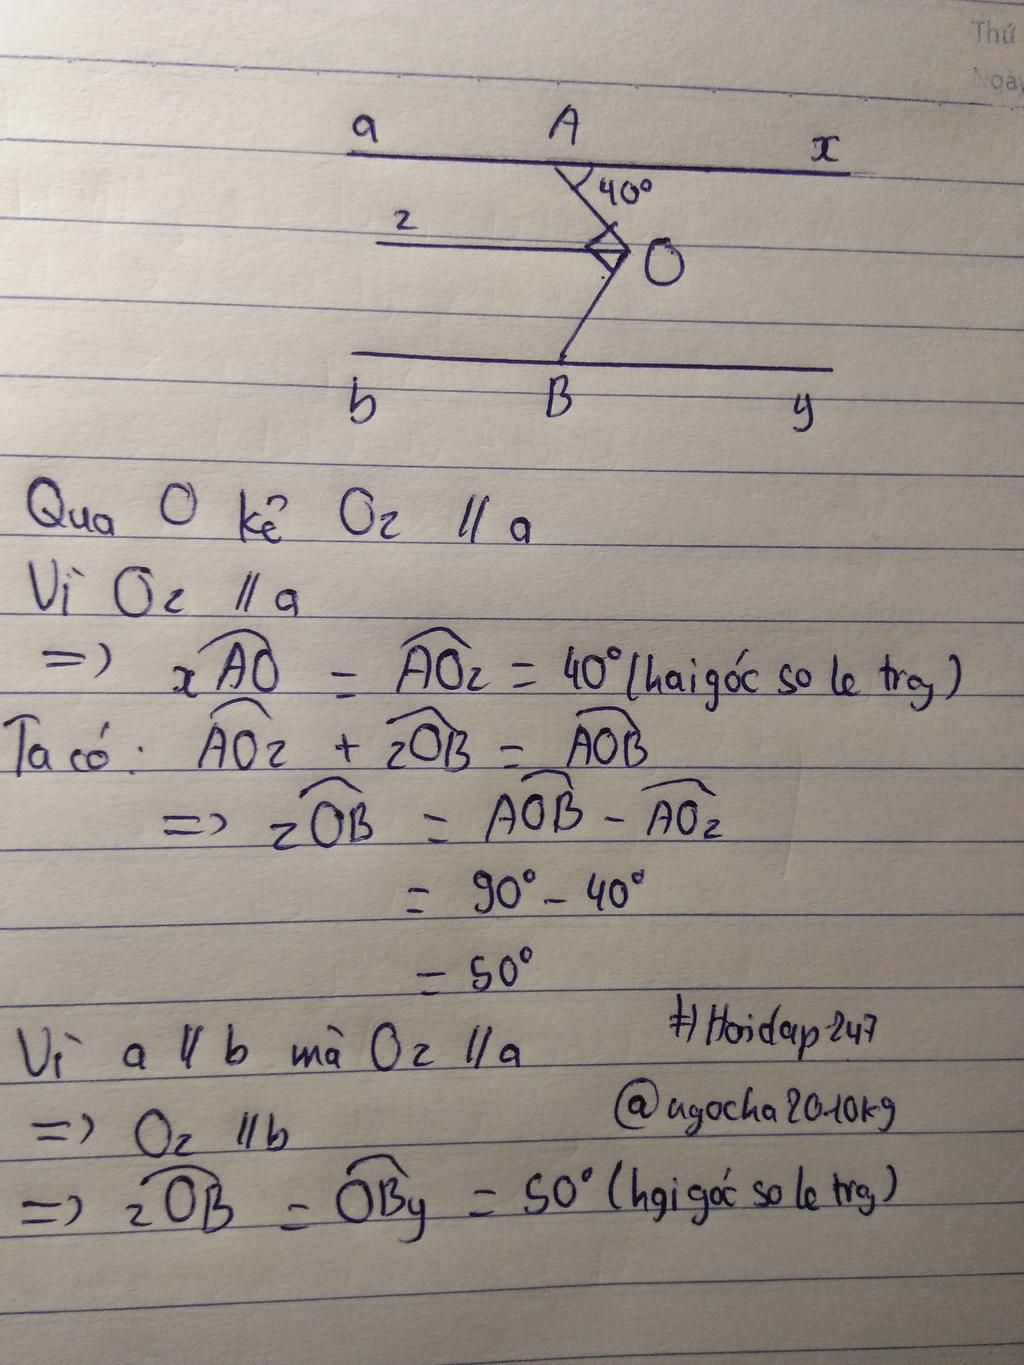 Thứ
Ngày
a A x
40°
z
O
b B y
Qua O kẻ Oz // a
Vì Oz // a
=> xAO = AOz = 40° (hai góc so le trg)
Ta có: AOz + zOB = AOB
=> zOB = AOB - AOz
= 90° - 40°
= 50°
Vì a // b mà Oz // a
#Hoidap247
=> Oz // b
@ngocha2010k9
=> zOB = OBy = 50° (hai góc so le trg)